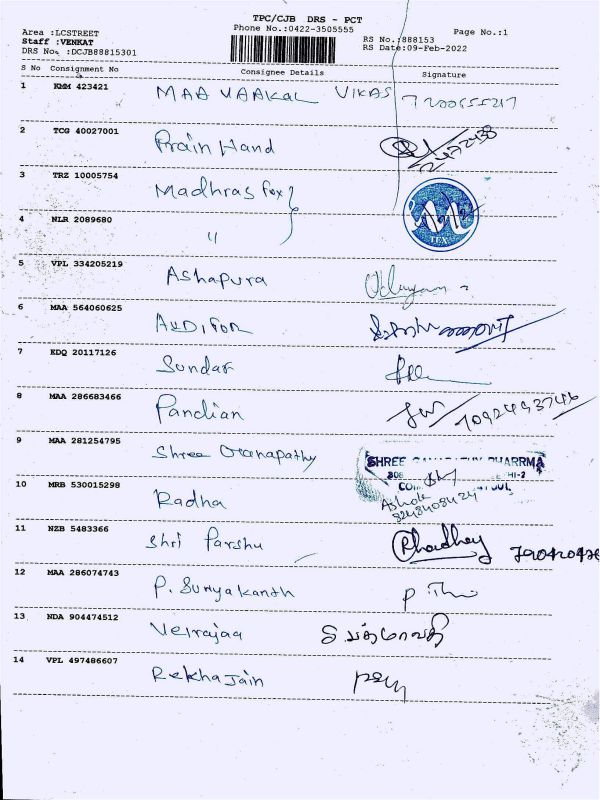 TPC/CJB DRS - PCT
Phone No.:0422-3505555
Page No.:1
Area :LCSTREET
Staff :VENKAT
DRS No. :DCJB88815301
RS No.:888153
RS Date:09-Feb-2022
S No Consignment No Consignee Details Signature
1 KMM 423421 MAA VAAKAL VIKAS
2 TCG 40027001 Prain Hand
3 TRZ 10005754 Madhras fox
TEX
4 NLR 2089680 "
5 VPL 334205219 Ashapura
6 MAA 564060625 AUDITOR
7 EDQ 20117126 Sundar
8 MAA 286683466 Pandian
9 MAA 281254795 Shree Ganapathy
SHREE
10 MRB 530015298 Radha
Ashok
8248408424
11 NZB 5483366 Shri Parshu
12 MAA 286074743 P. Suryakanth
13 NDA 904474512 Velrajaa
14 VPL 497486607 Rekha Jain